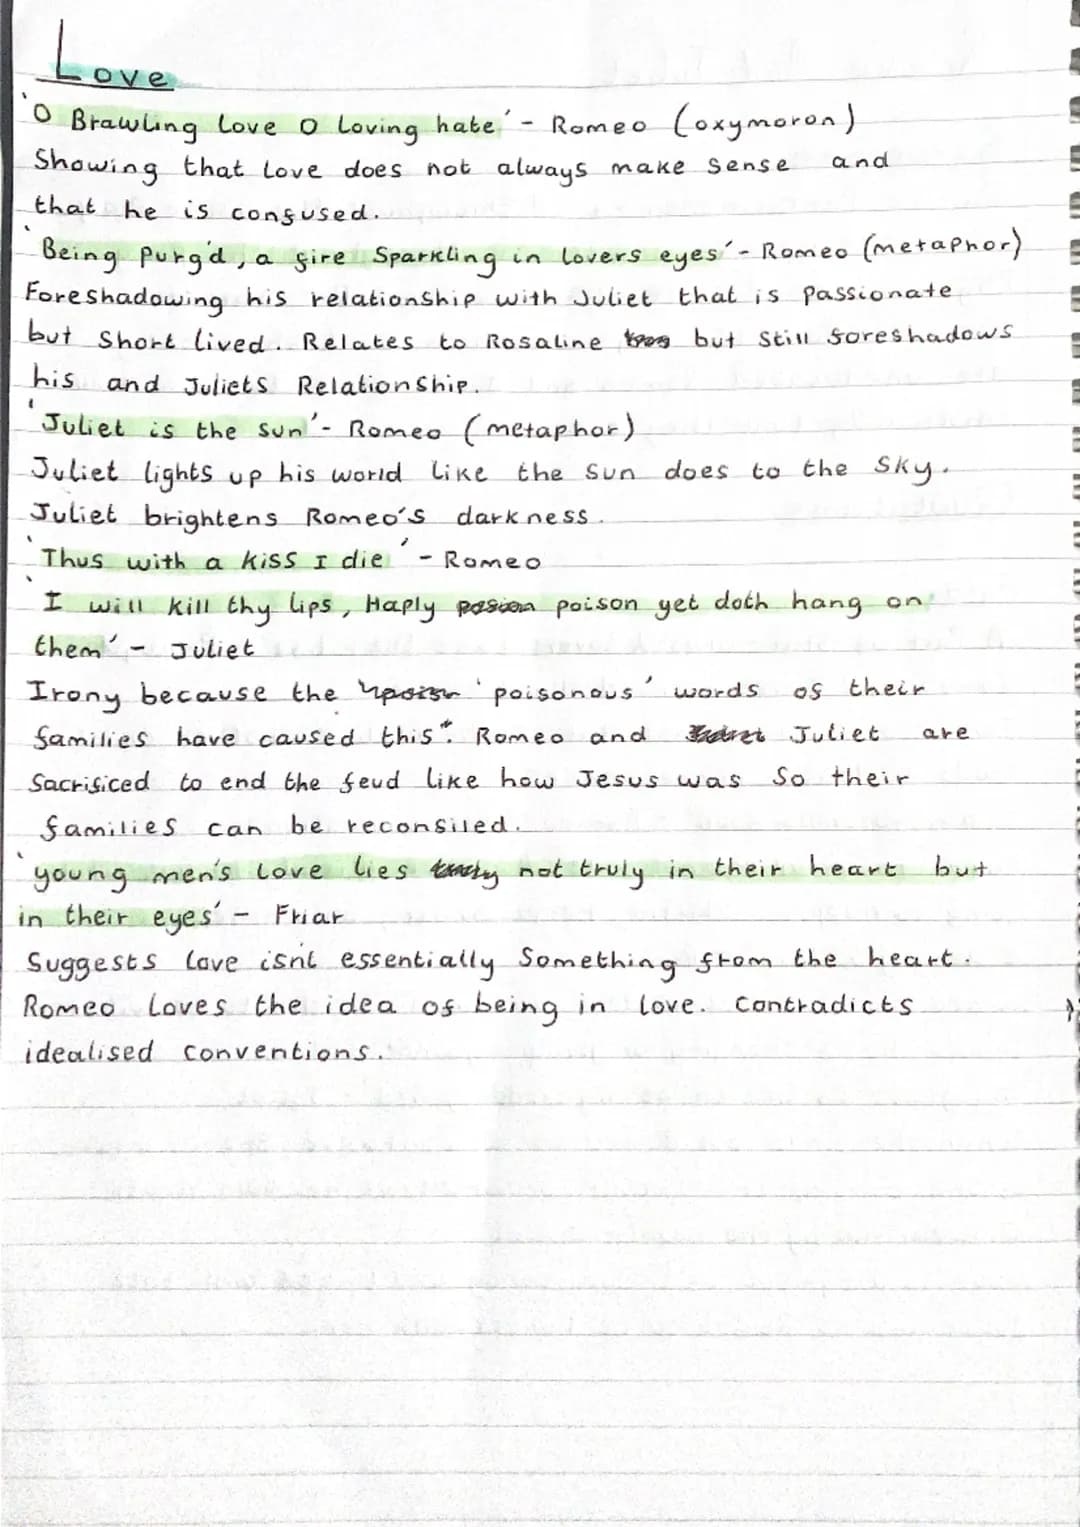 Love
'O Brawling love O loving hate' - Romeo (oxymoron)
Showing that love does not always make sense and
that he is confused.
'Being Purg'd, a fire Sparkling in lovers eyes' - Romeo (metaphor)
Foreshadowing his relationship with Juliet that is passionate
but short lived. Relates to Rosaline but still foreshadows
his and Juliets Relationship.
'Juliet is the sun' - Romeo (metaphor)
Juliet lights up his world like the sun does to the sky.
Juliet brightens Romeo's darkness.
'Thus with a kiss I die' - Romeo
'I will kill thy lips, Haply poison yet doth hang on
them' - Juliet
Irony because the 'poisonous' words of their
families have caused this*. Romeo and Juliet are
Sacrificed to end the feud like how Jesus was so their
families can be reconsiled.
'young men's love lies not truly in their heart but
in their eyes' - Friar
Suggests love isnt essentially something from the heart.
Romeo loves the idea of being in love. Contradicts
idealised conventions.